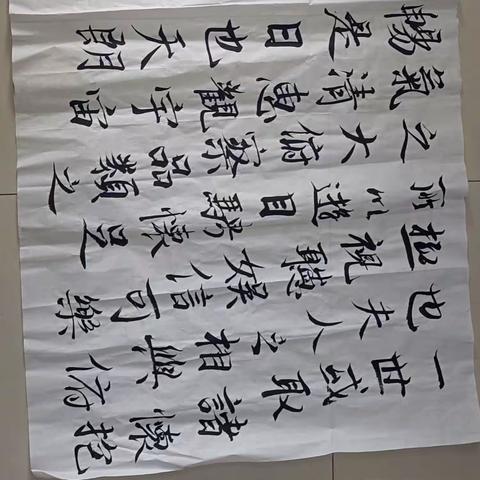 暢是日也天朗
氣清惠觀宇宙
之大俯察品類之
所以遊目騁懷足
極視聽娛信可樂
也夫人之相與俯
一世或取諸懷抱